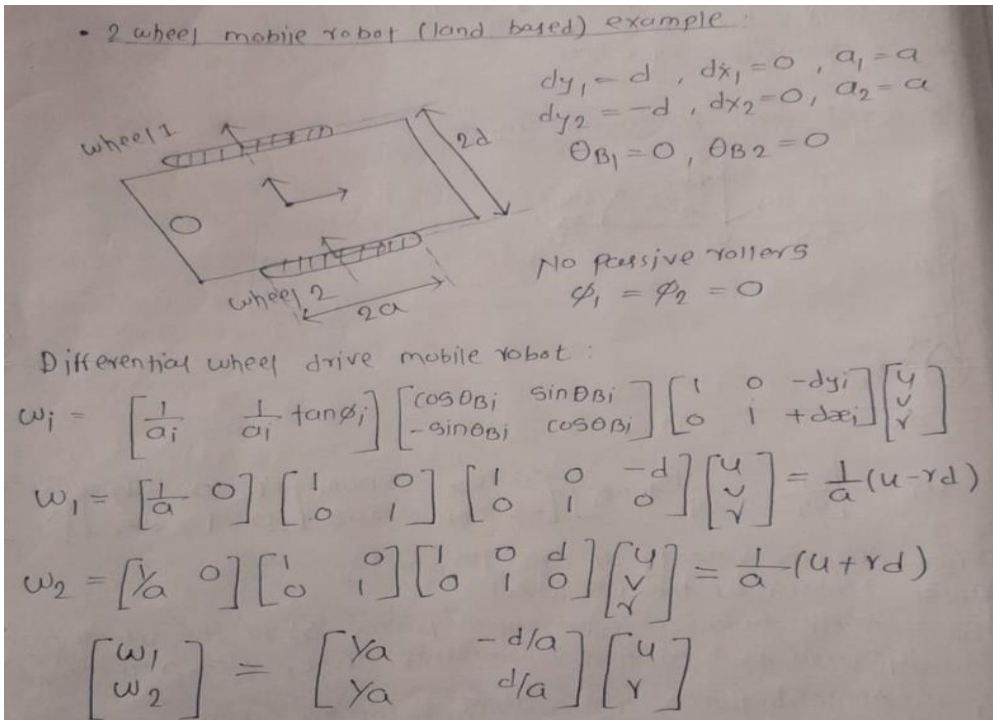 • 2 wheel mobile robot (land based) example :
dy₁ = d , dx₁ = 0 , a₁ = a
dy₂ = -d , dx₂ = 0 , a₂ = a
θB₁ = 0 , θB2 = 0
wheel 1
2d
No passive rollers
φ₁ = φ₂ = 0
wheel 2
2a
Differential wheel drive mobile robot :
ωi = [1/ai 1/ai tanφi] [cosθBi sinθBi; -sinθBi cosθBi] [1 0 -dyi; 0 1 +dxi] [u; v; r]
ω₁ = [1/a 0] [1 0; 0 1] [1 0 -d; 0 1 0] [u; v; r] = 1/a (u-rd)
ω₂ = [1/a 0] [1 0; 0 1] [1 0 d; 0 1 0] [u; v; r] = 1/a (u+rd)
[ω1; ω2] = [1/a -d/a; 1/a d/a] [u; r]